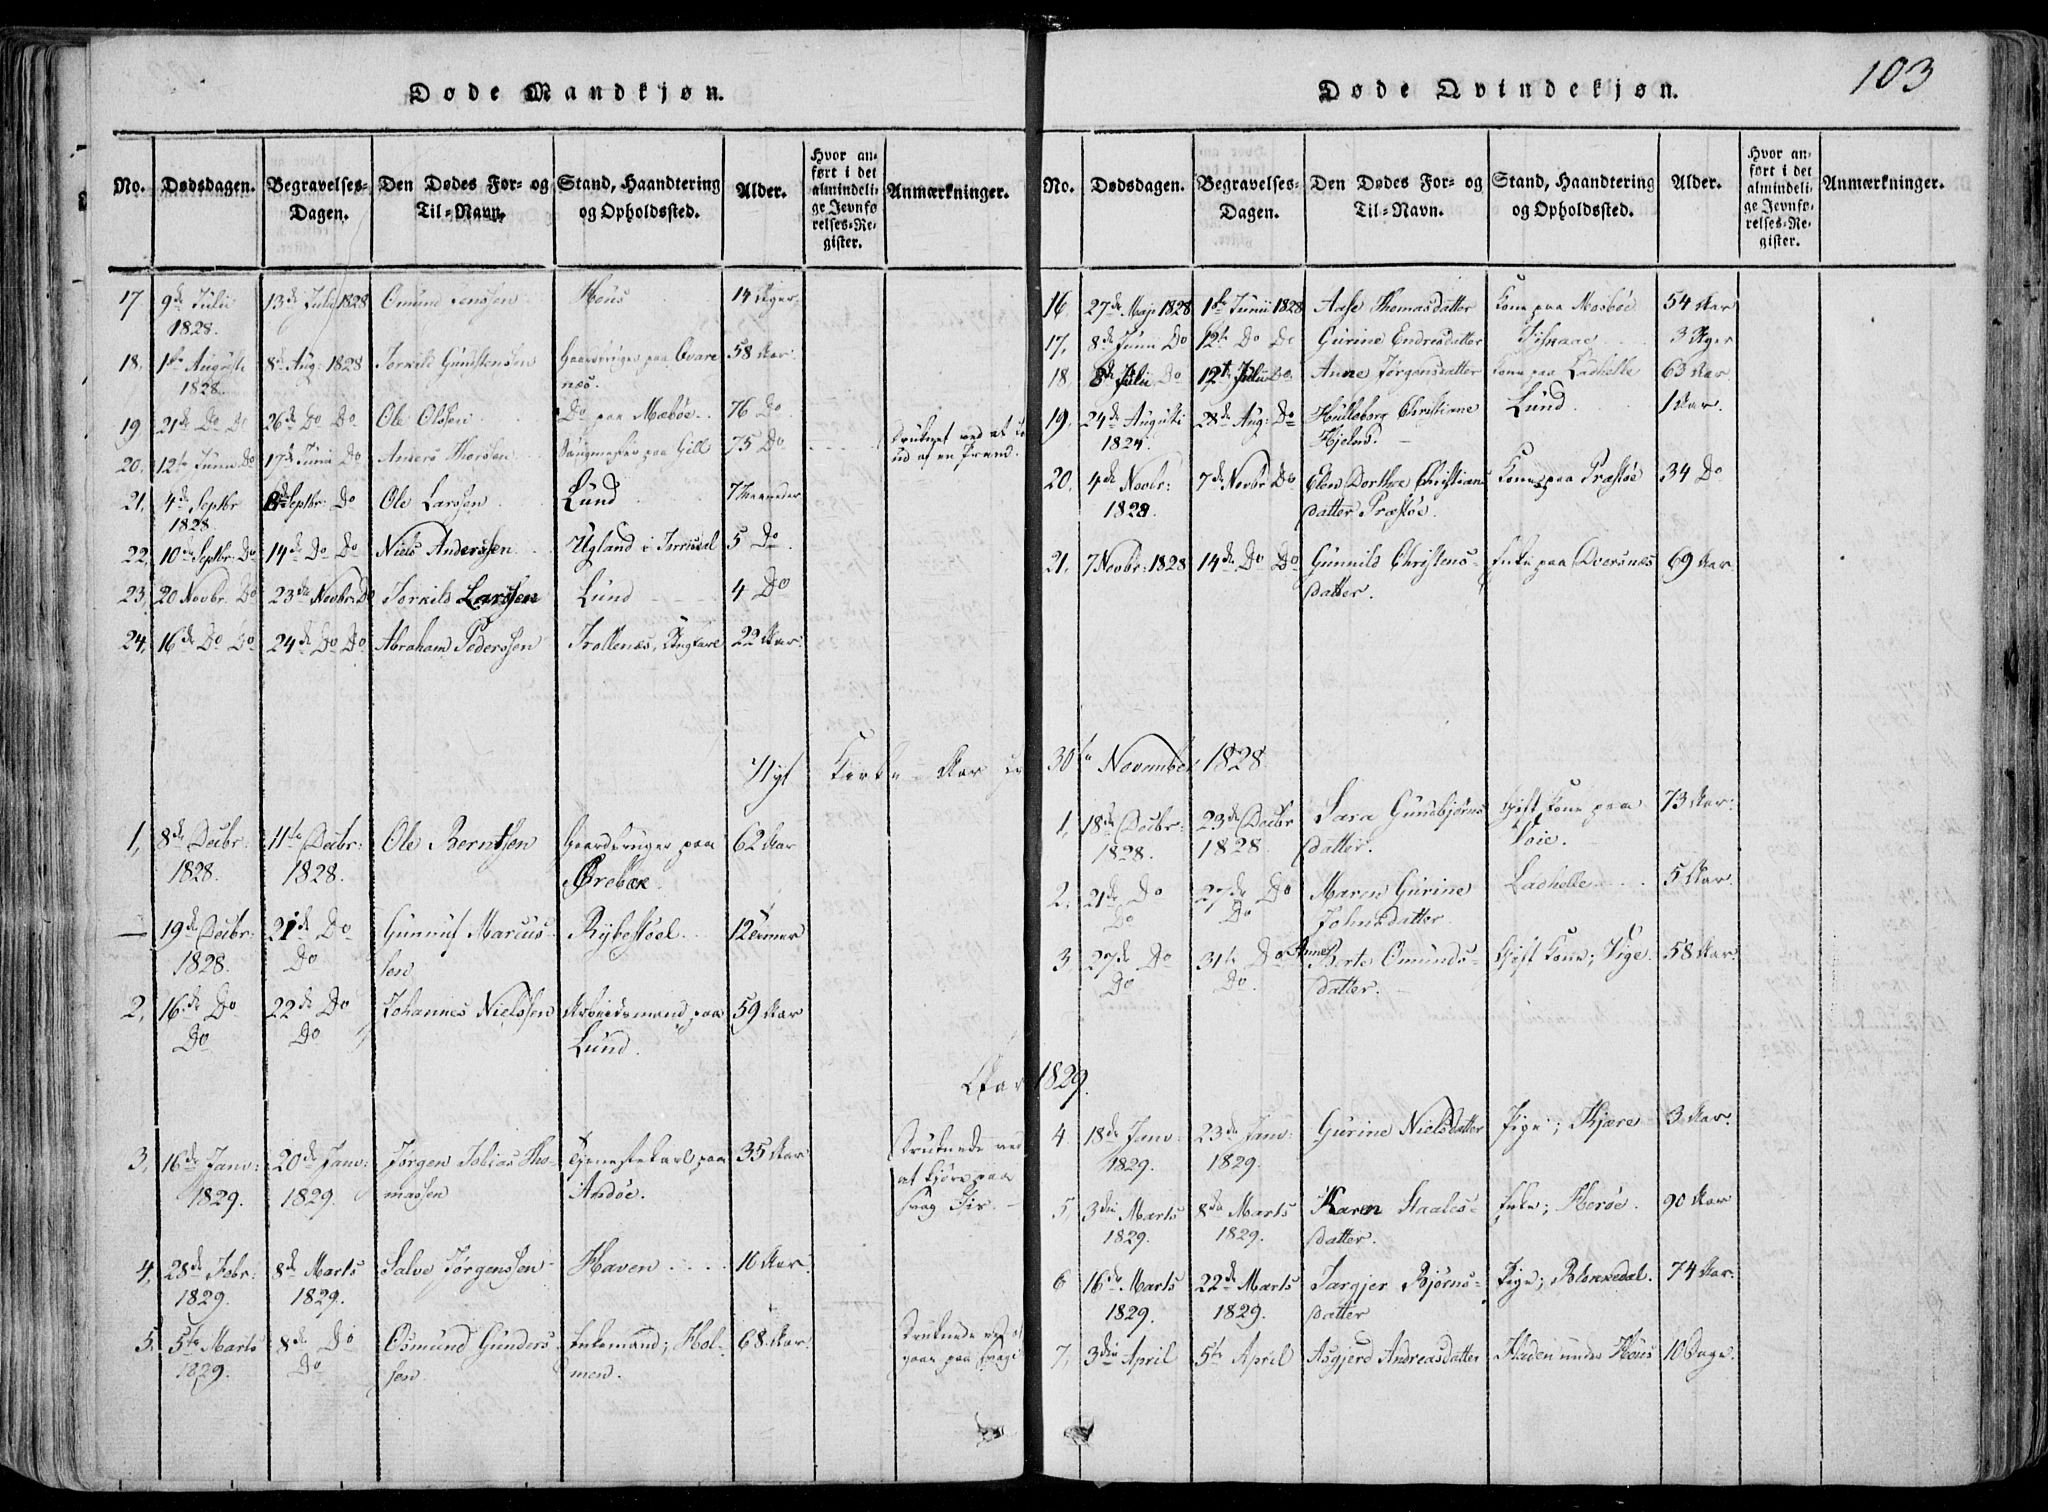 103
Døde Mandkjøn.
No. Dødsdagen. Begravelses-Dagen. Den Dødes For- og Til-Navn. Stand, Haandtering og Opholdssted. Alder. Hvor anført i det almindelige Jevnførelses-Register. Anmærkninger.
17 9de Julii 13de Julii 1828 Omund Jenssen Høus 14 Uger
1828.
18. 1ste Augusti 8de Aug: 1828 Torkild Gundstensen Gaardbruger paa Qvare 58 Aar.
1828 næs.
19, 21de Do Do 26de Do Do Ole Olssen Do paa Mæbøe 76 Do
20. 12te Junii Do 17de Junii Do Anders Thorssen paa Gill 75 Do Druknet ved at
ud af en Pram.
21, 4de Septbr 8de Septbr: Do Ole Larssen Lund 7 Maaneder
1828
22, 10de Septbr. Do 14de Do Do Niels Anderssen Ugland i 5 Do
23, 20 Novbr. Do 23de Novbr: Do Torkild Larssen Lund 4 Do
24, 16de Do Do 24de Do Do Abraham Pederssen Trollenæs, Ungkarl 22 Aar.
Nyt Kirke-Aar
1, 8de Decbr: 11te Decbr: Ole Berntsen Gaardbruger paa 62 Aar
1828. 1828. Ørebæk
— 19de Decbr: 21de Do Gunnuf Marcus- Rybestøel 12 Timer
1828. Do sen
2, 16de Do 22de Do Johannes Nielssen Arbeidsmand paa 59 Aar
Do Do Lund.
Aar
3, 16de Janv: 20de Janv: Jørgen Tobias Tho- Tjenestekarl paa 35 Aar Druknede ved
1829. 1829. massen Andøe. at kjøre paa
svag Iis.
4, 28de Febr: 8de Marts Salve Jørgenssen Haven 16 Aar.
1829. 1829.
5. 5te Marts 8de Do Osmund Gunders- Enkemand; Hol- 68 Aar. Druknede ved at
1829. Do sen men. gaae paa svag
Døde Qvindekjøn.
No. Dødsdagen. Begravelses-Dagen. Den Dødes For- og Til-Navn. Stand, Haandtering og Opholdssted. Alder. Hvor anført i det almindelige Jevnførelses-Register. Anmærkninger.
16, 27de Maji 1828 1ste Junii 1828 Aase Thomasdatter Kone paa Mosbøe 54 Aar
17, 8de Junii Do 12te Do Do Gurine Endresdatter 3 Uger
18. 8de Julii Do 12te Julii Do Anne Jørgensdatter Kone paa Ladhelle 63 Aar
19, 24de Augusti 28de Aug: Do Hulleborg Christiane Lund 1 Aar.
1824. Hjelm.
20, 4de Novbr: 7de Novbr Do Elen Dorthe Christians Kone paa Præstøe 34 Do
1828. datter Præstøe.
21, 7 Novbr: 1828 14de Do Do Gunnild Christens- Enke paa Dversnæs 69 Aar.
datter.
30te November 1828.
1, 18de Decbr: 23de Decbr Sara Gundbjørns Gift Kone paa 73 Aar:
1828. 1828 datter. Voie.
2. 21de Do 27de Do Maren Gurine Ladhelle 5 Aar.
Do Do Johnsdatter
3 27de Do 31te Do Anne Berte Omunds- Gift Kone; Vige 58 Aar
Do Do. datter.
1829.
4. 18de Janv: 23de Janv: Gurine Nielsdatter Pige; Kjære 3 Aar.
1829. 1829.
5, 3die Marts 8de Marts Karen Staales- Enke; Herøe. 90 Aar
1829. 1829. datter.
6 16de Marts 22de Marts Targjer Bjørns- Pige; Blennedal. 74 Aar:
1829. 1829. datter
7, 3die April 5te April Asgjerd Andreasdatter Fladen under Høus 10 Dage.